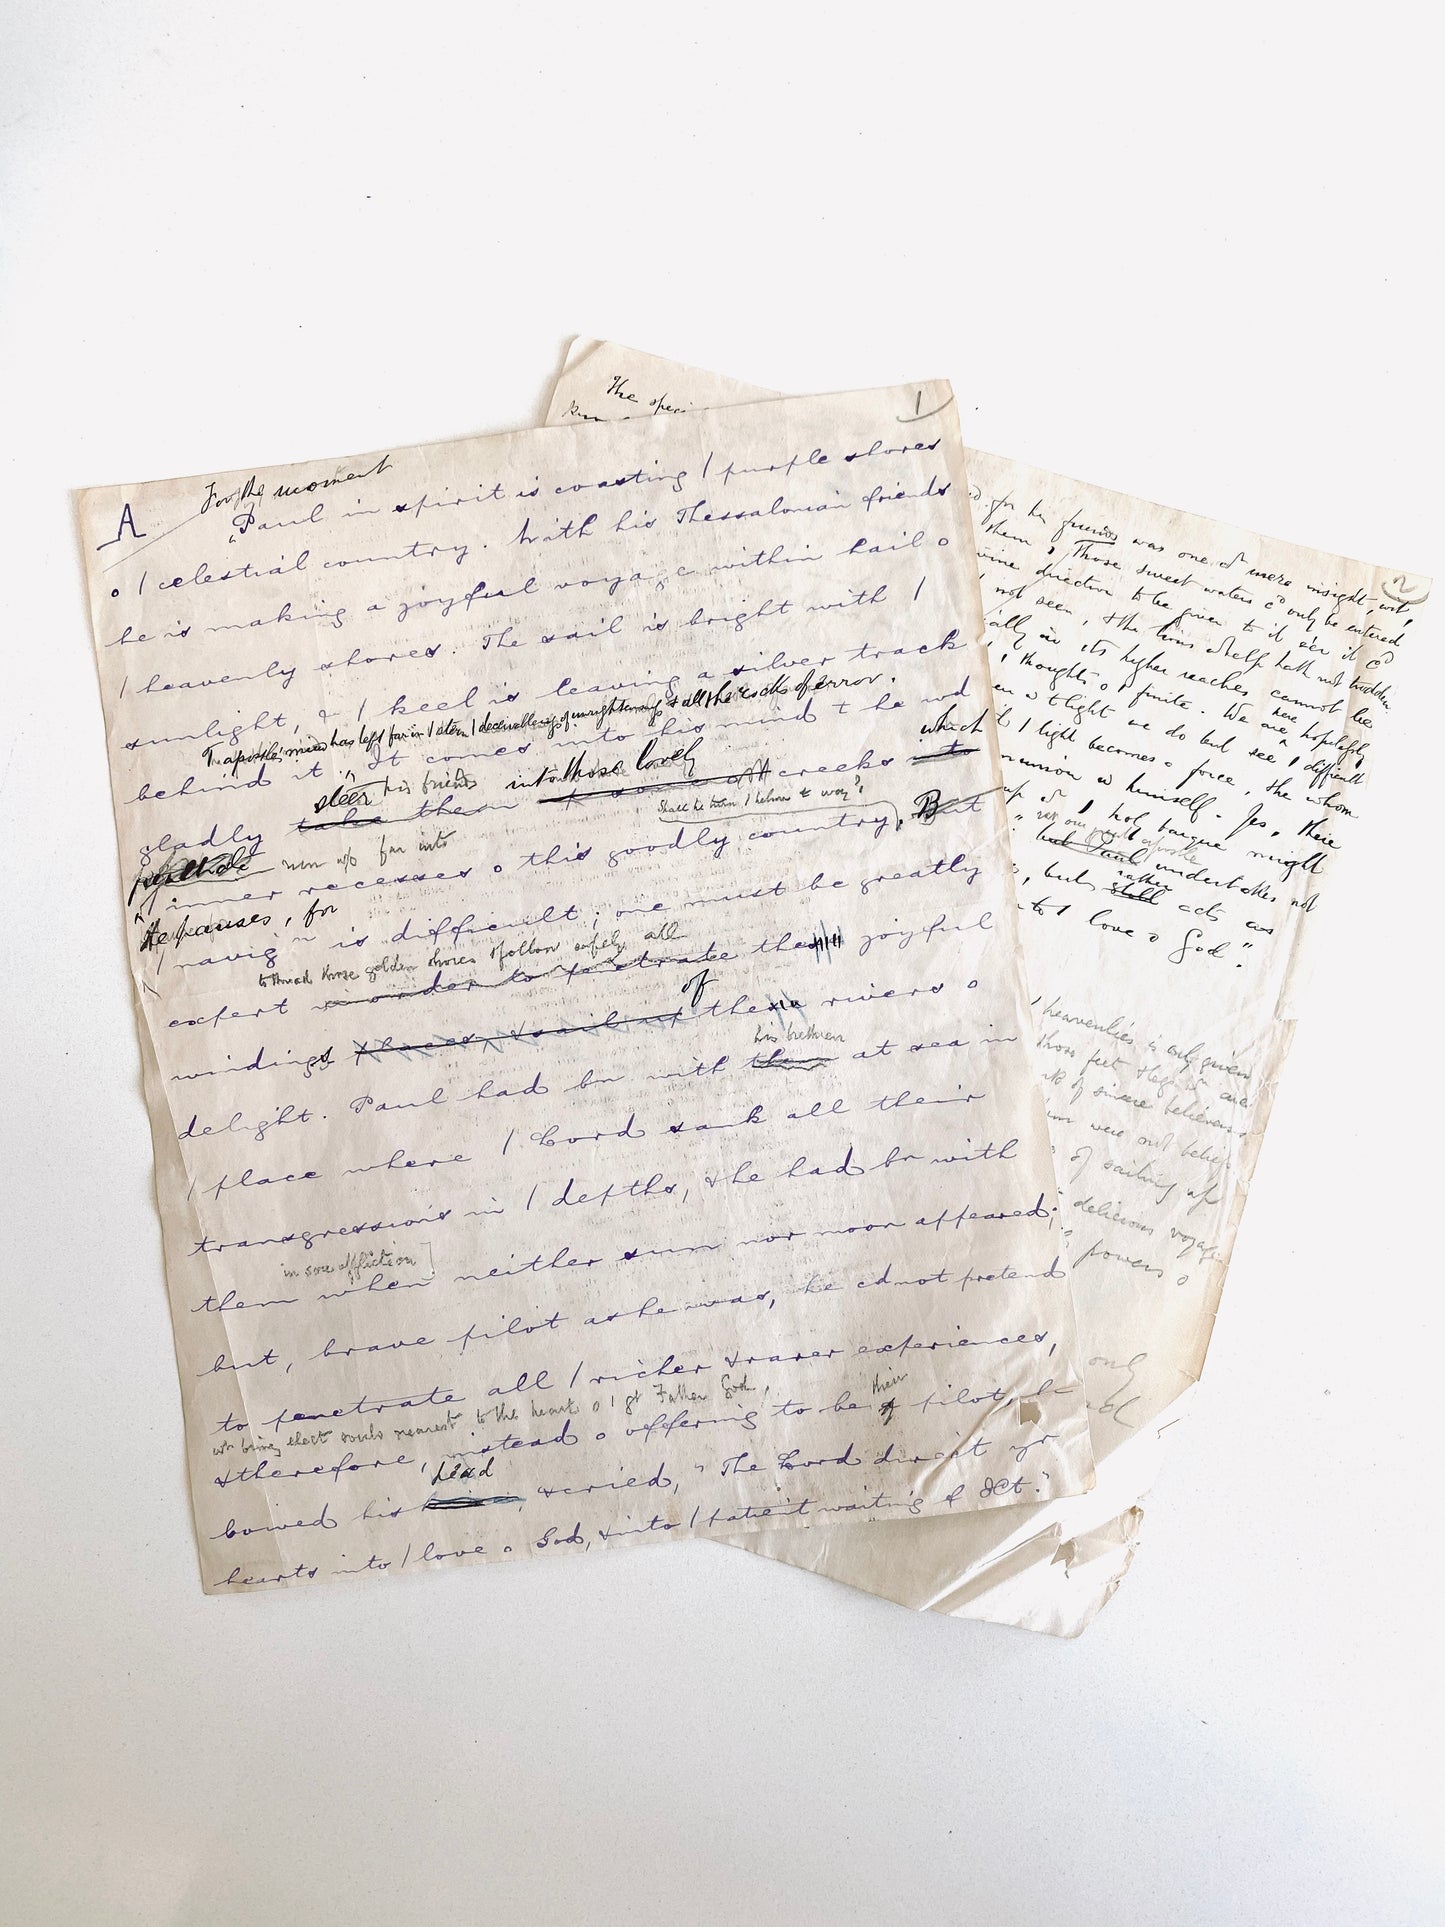 The speci
1
A
For the moment
"Paul in spirit is coasting / purple shores
o / celestial country. With his Thessalonian friends
he is making a joyful voyage within hail o
/ heavenly shores. The sail is bright with /
sunlight, & / keel is leaving a silver track
T apostle's mind has left far in / stern / deceivableness of unrighteousness & all the rocks of error.
behind it. It comes into his mind t he wd
steer his friends into those lovely which
gladly take them creeks into
shall he turn / helm t way?
run up far into
/ inner recesses o this goodly country, B But
He pauses, for
/ navign is difficult; one must be greatly
to thread those golden shores & follow safely all
expert in order to penetrate the joyful
of
windings places, & sail up these rivers o
his brethren
delight. Paul had bn with them at sea in
/ place where / Lord sank all their
transgressions in / depths, & he had bn with
in sore affliction
them when neither sun nor moon appeared;
but, brave pilot as he was, he cd not pretend
to penetrate all / richer & rarer experiences,
wh bring elect souls nearest to the heart o / gt Father God,
their
& therefore, instead o offering to be pilot, he
head
bowed his & cried, "The Lord direct yr
hearts into / love o God, & into / patient waiting f JCt."
2
for his friends was one of mere insight, wt
them, Those sweet waters cd only be entered
direction to be given to it e'er it cd
not seen, & the lion's whelp hath not trodden.
in its higher reaches cannot be
thoughts o / finite. We are here hopefully,
w t light we do but see / difficult
/ light becomes a force, & he whom
w himself. Yes, there
up of / hot barque might
but Paul undertakes not
rather
, but still acts as
to / love o God".
heavenlies is only given
those feet steps are
of sincere believers
were not
of sailing up
delicious voyage
powers o
only